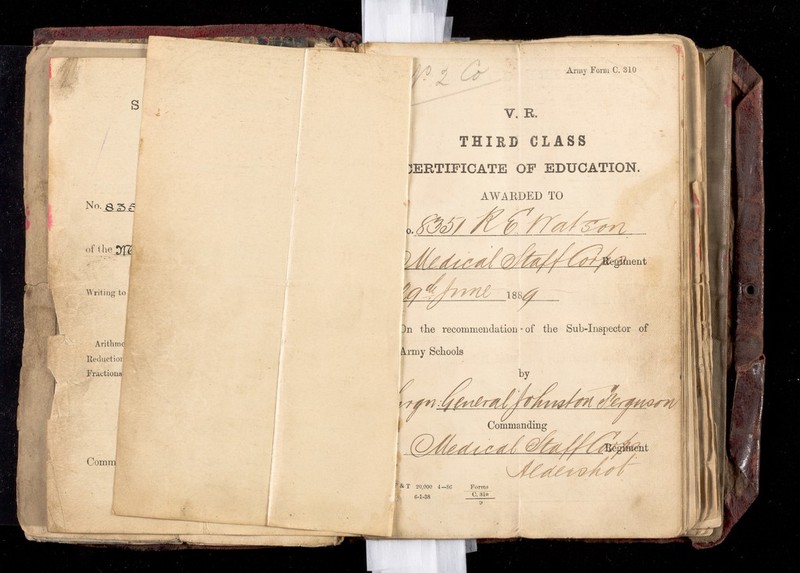 S
No. 835
of the Me
Writing to
Arithme
Reduction
Fractions
Comm
No 2 Co
Army Form C. 310
V. R.
THIRD CLASS
CERTIFICATE OF EDUCATION.
AWARDED TO
o. 8351 R E Watson
Medical Staff Corps Regiment
29th June 1889
On the recommendation of the Sub-Inspector of
Army Schools
by
urgn. General Johnston Ferguson
Commanding
Medical Staff Corps Regiment
Aldershot
& T 20,000 4—86 Forms
6-1-38 C. 310
9